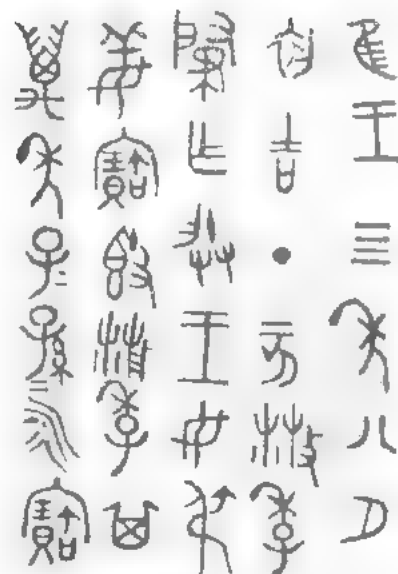 隹王四年八月
初吉丁亥散季
肇乍朕王母弔
姜寶簋散季其
萬年子＝孫＝永寶